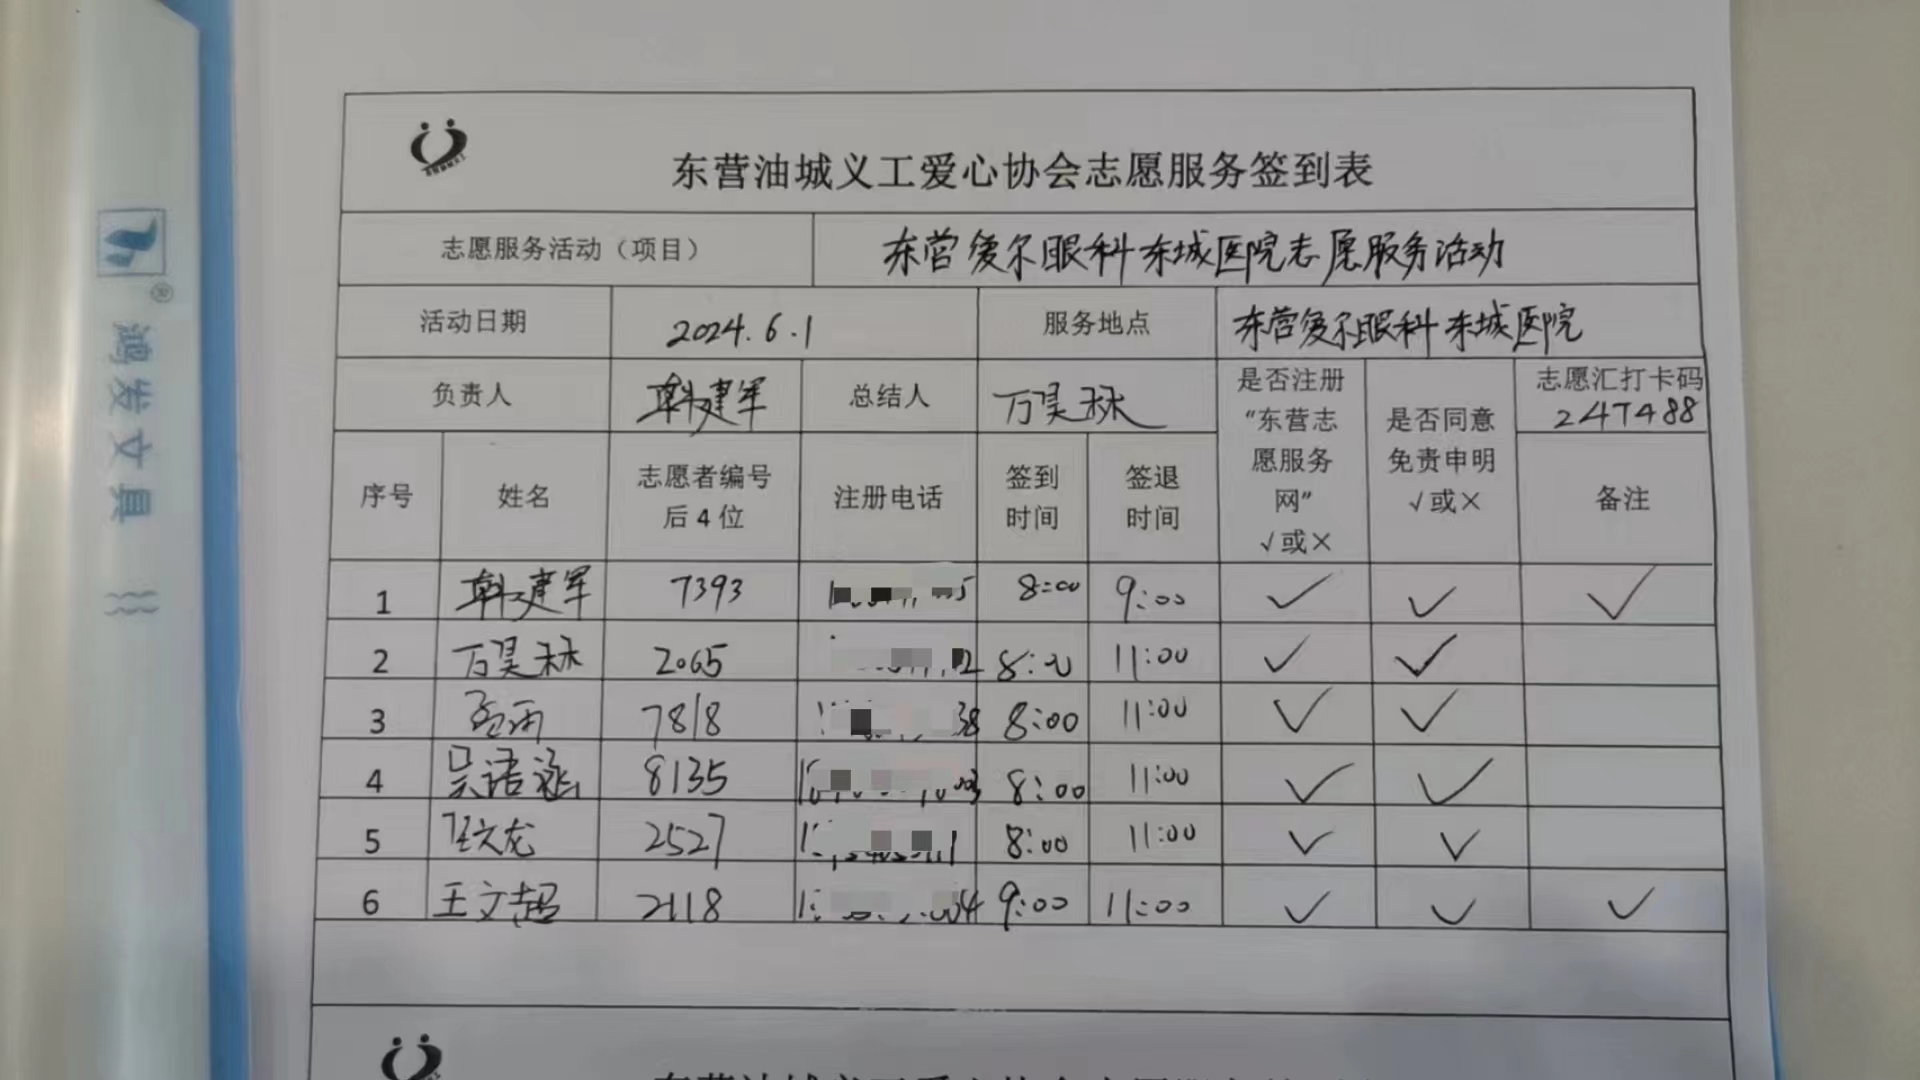 东营油城义工爱心协会志愿服务签到表
志愿服务活动（项目） 东营爱尔眼科东城医院志愿服务活动
活动日期 2024.6.1 服务地点 东营爱尔眼科东城医院
负责人 韩建军 总结人 万昊林 是否注册“东营志愿服务网”√或× 是否同意免责申明√或× 志愿汇打卡码 247488
序号 姓名 志愿者编号后4位 注册电话 签到时间 签退时间 备注
1 韩建军 7393 8:00 9:00 ✓ ✓ ✓
2 万昊林 2065 8:00 11:00 ✓ ✓
3 孟雨 7818 8:00 11:00 ✓ ✓
4 吴语涵 8135 8:00 11:00 ✓ ✓
5 文龙 2527 8:00 11:00 ✓ ✓
6 王文超 2118 9:00 11:00 ✓ ✓ ✓
鸿发文具
®